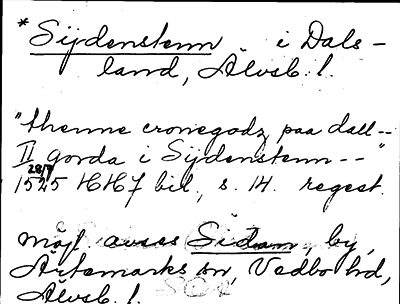 * Sijdenstenn i Dals-
land, Älvsb. l.
"thenne cronegodz paa dall--
II gorda i Sijdenstenn--"
28/7
1525 HH7 bil, s. 14. regest.
möjl. avses Sidam, by,
Ärtemarks sn, Vedbo hd,
Älvsb. l.